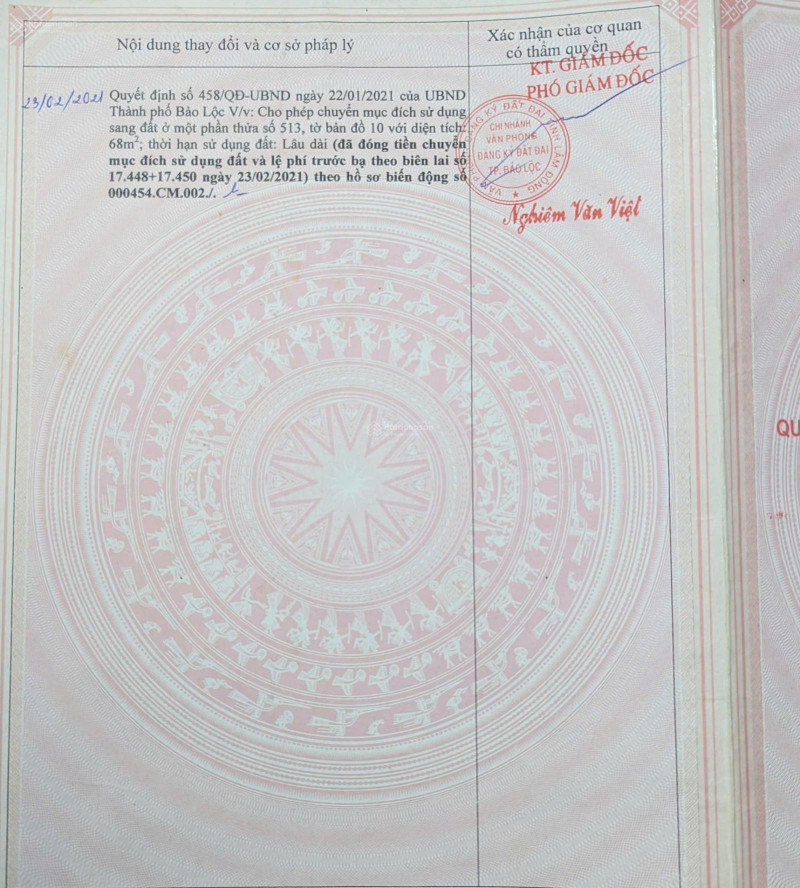 Nội dung thay đổi và cơ sở pháp lý
Xác nhận của cơ quan
có thẩm quyền
23/02/2021
Quyết định số 458/QĐ-UBND ngày 22/01/2021 của UBND
Thành phố Bảo Lộc V/v: Cho phép chuyển mục đích sử dụng
sang đất ở một phần thửa số 513, tờ bản đồ 10 với diện tích:
68m²; thời hạn sử dụng đất: Lâu dài (đã đóng tiền chuyển
mục đích sử dụng đất và lệ phí trước bạ theo biên lai số
17.448+17.450 ngày 23/02/2021) theo hồ sơ biến động số
000454.CM.002./.
KT. GIÁM ĐỐC
PHÓ GIÁM ĐỐC
VĂN PHÒNG ĐĂNG KÝ ĐẤT ĐAI TỈNH LÂM ĐỒNG
CHI NHÁNH
VĂN PHÒNG
ĐĂNG KÝ ĐẤT ĐAI
TP. BẢO LỘC
Nghiêm Văn Việt
QU